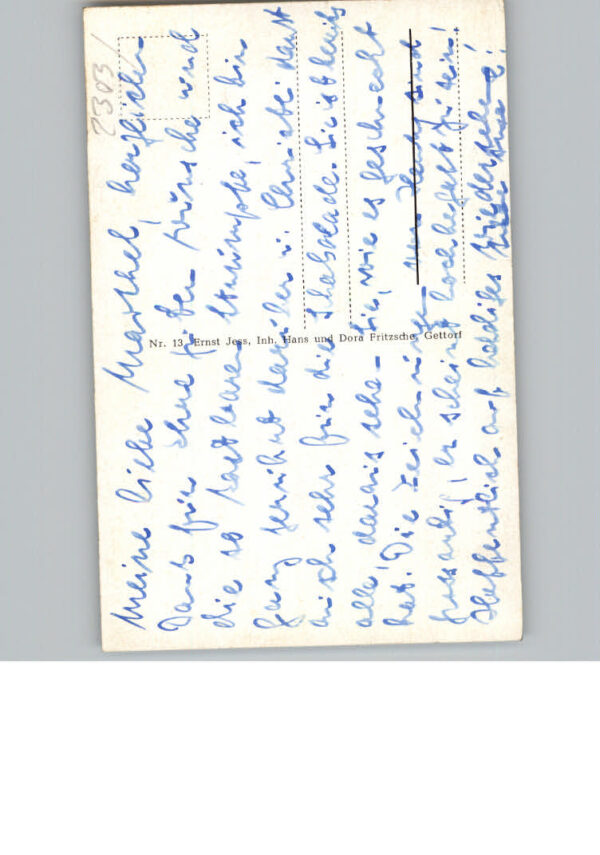 Meine liebe Marthel, herzlichen
Dank für Ihre guten Wünsche und
die so kostbaren Strümpfe, ich bin
ganz gerührt darüber u. Christel dankt
auch sehr für die Schokolade. Sie ist bereits
alle, daraus sehen Sie, wie es geschmeckt
hat. Die Zeichnungen von sind
großartig, er scheint hochbegabt zu sein!
Hoffentlich auf baldiges Wiedersehen!
Nr. 13 Ernst Jess, Inh. Hans und Dora Fritzsche, Gettorf
2303/